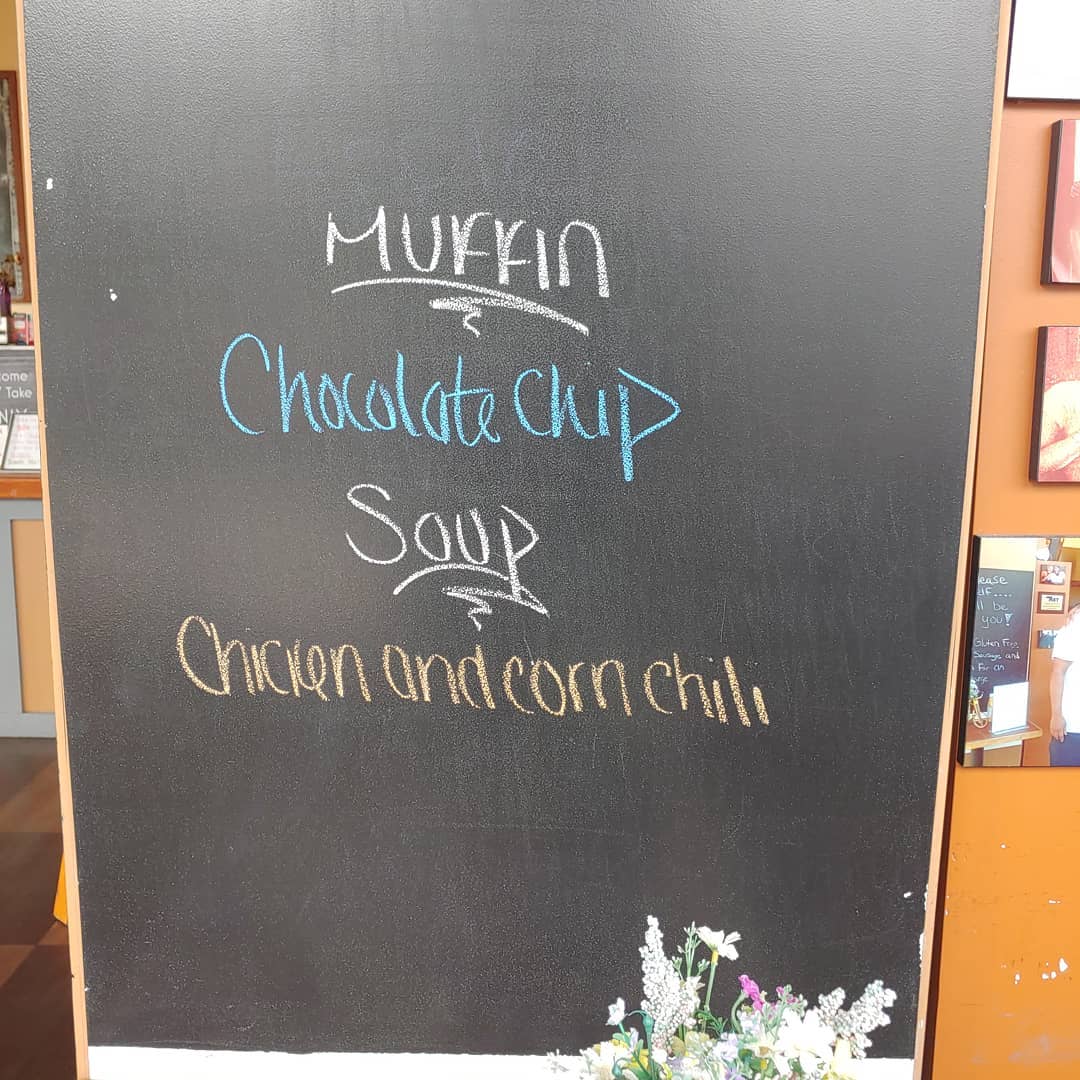 MUFFIN
Chocolate Chip
Soup
Chicken and corn chili
come
Take
ease
lf....
ll be
you!
Gluten Free
Sausage and
for an